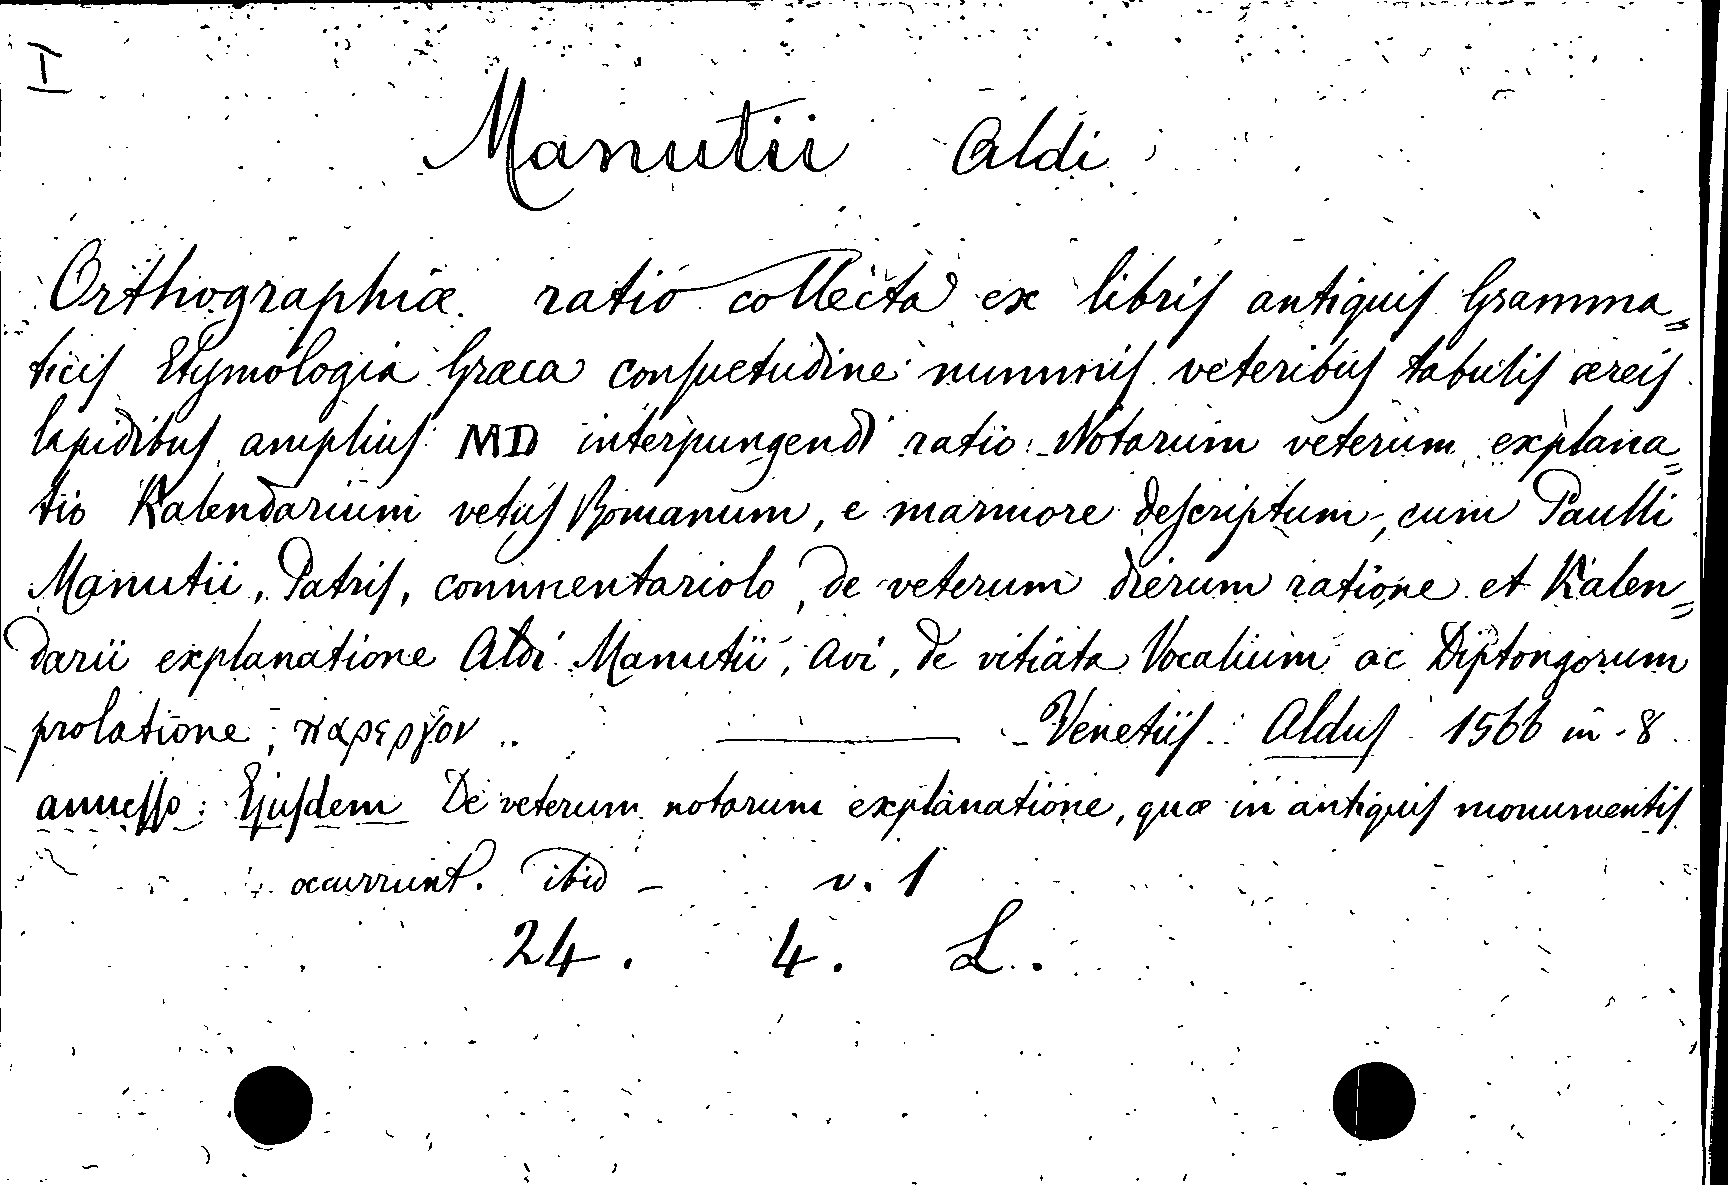 I
Manutii Aldi
Orthographiæ ratio collecta ex libris antiquis Gramma=
ticis Etymologia Græca consuetudine nummis veteribus tabulis æreis
lapidibus amplius MD interpungendi ratio: Notarum veterum explana=
tio Kalendarium vetus Romanum, e marmore descriptum, cum Paulli
Manutii, Patris, commentariolo, de veterum dierum ratione et Kalen=
darii explanatione Aldi Manutii, Avi, de vitiata Vocalium ac Diptongorum
prolatione, παρεργον .. ——— Venetiis: Aldus 1566 in-8
annesso: Ejusdem De veterum notarum explanatione, quæ in antiquis monumentis
occurrunt. ibid - v. 1
24. 4. L.